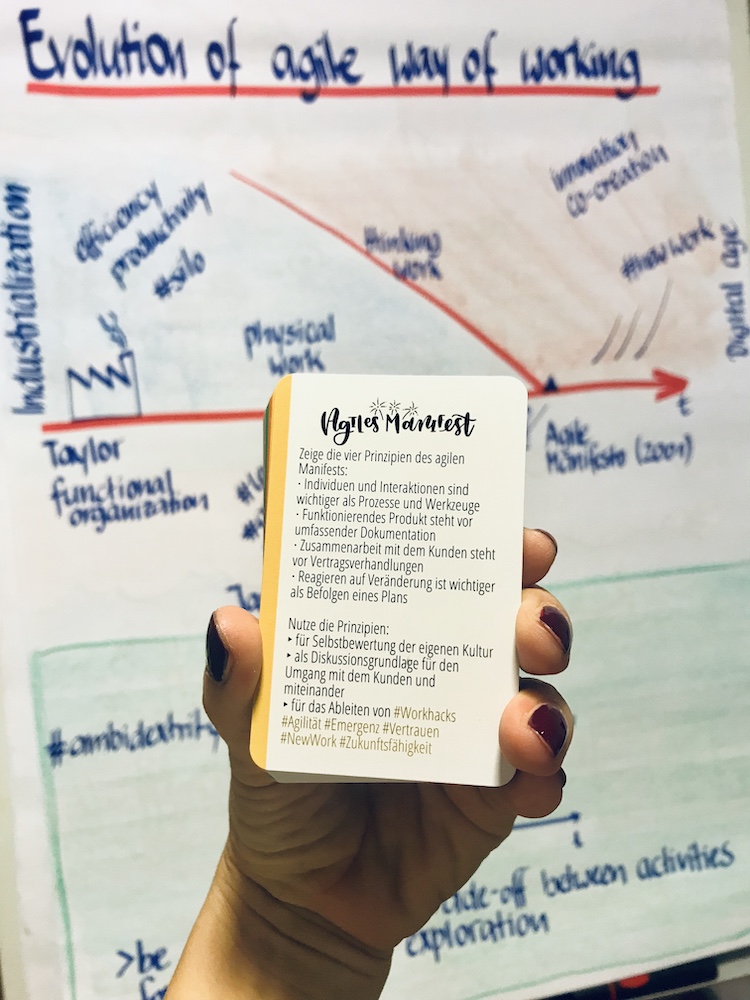 Evolution of agile way of working
Industrialization
efficiency
productivity
#silo
thinking
work
innovation
co-creation
#new work
Digital age
physical
work
t
Taylor
functional
organization
Agile
Manifesto (2001)
Agiles Manifest
Zeige die vier Prinzipien des agilen
Manifests:
· Individuen und Interaktionen sind
wichtiger als Prozesse und Werkzeuge
· Funktionierendes Produkt steht vor
umfassender Dokumentation
· Zusammenarbeit mit dem Kunden steht
vor Vertragsverhandlungen
· Reagieren auf Veränderung ist wichtiger
als Befolgen eines Plans
Nutze die Prinzipien:
‣ für Selbstbewertung der eigenen Kultur
‣ als Diskussionsgrundlage für den
Umgang mit dem Kunden und
miteinander
‣ für das Ableiten von #Workhacks
#Agilität #Emergenz #Vertrauen
#NewWork #Zukunftsfähigkeit
#ambidextrity
between activities
exploration
>be